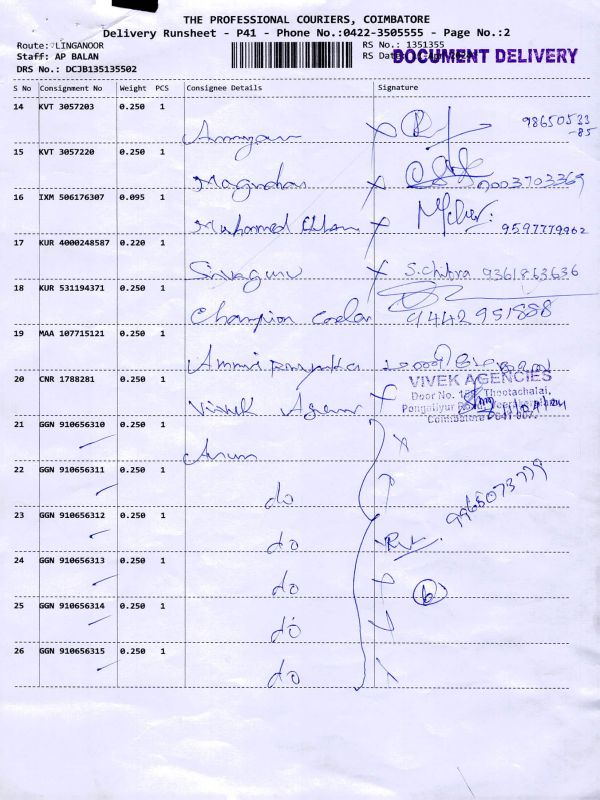 THE PROFESSIONAL COURIERS, COIMBATORE
Delivery Runsheet - P41 - Phone No.:0422-3505555 - Page No.:2
Route: LINGANOOR
RS No.: 1351355
Staff: AP BALAN
RS Date:
DOCUMENT DELIVERY
DRS No.: DCJB135135502
S No Consignment No Weight PCS Consignee Details Signature
14 KVT 3057203 0.250 1
98650533
-85
15 KVT 3057220 0.250 1
9003703369
16 IXM 506176307 0.095 1
Muhammed
9597779962
17 KUR 4000248587 0.220 1
Sivaguru S.chitra 9361863636
18 KUR 531194371 0.250 1
Champion 9442951888
19 MAA 107715121 0.250 1
20 CNR 1788281 0.250 1
VIVEK AGENCIES
Door No. Thootachalai,
Vivek Agen
Coimbatore
21 GGN 910656310 0.250 1
Arun
22 GGN 910656311 0.250 1
do
9965073779
23 GGN 910656312 0.250 1
do
24 GGN 910656313 0.250 1
do
6
25 GGN 910656314 0.250 1
do
26 GGN 910656315 0.250 1
do